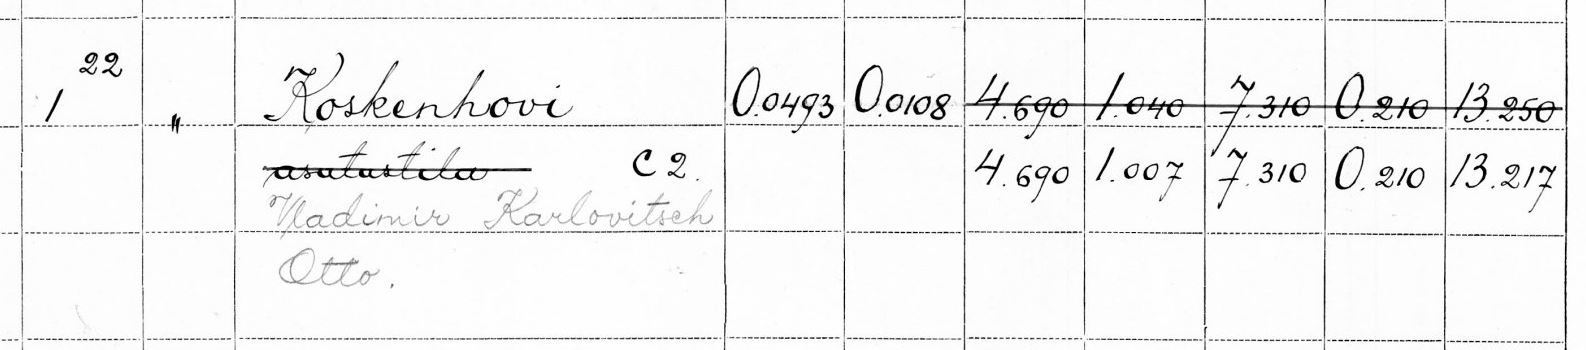 1²² " Koskenhovi 0.0493 0.0108 4.690 1.040 7.310 0.210 13.250
asutustila C 2. 4.690 1.007 7.310 0.210 13.217
Vladimir Karlovitsch
Otto.